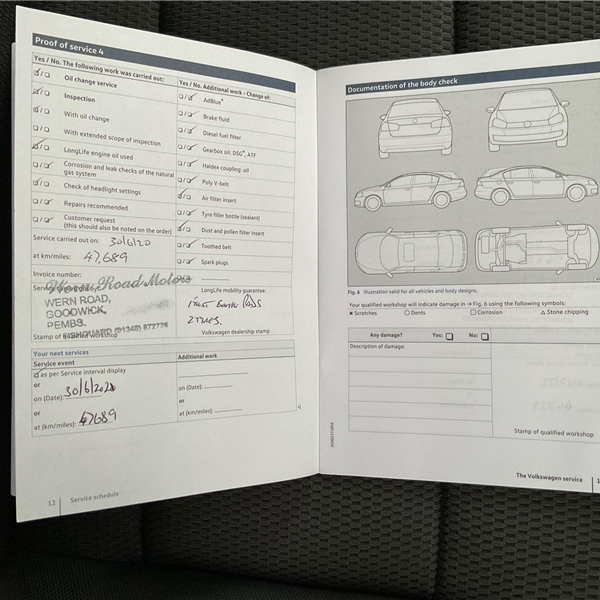 Proof of service 4
Yes / No. The following work was carried out:
Oil change service
Inspection
With oil change
With extended scope of inspection
LongLife engine oil used
Corrosion and leak checks of the natural
gas system
Check of headlight settings
Repairs recommended
Customer request
(this should also be noted on the order)
Service carried out on: 30/6/20
at km/miles: 47,689
Invoice number:
Wern Road Motors
WERN ROAD,
GOODWICK,
PEMBS.
FISHGUARD (01348) 872776
Stamp of qualified workshop
Yes / No. Additional work - Change of:
AdBlue®
Brake fluid
Diesel fuel filter
Gearbox oil, DSG®, ATF
Haldex coupling: oil
Poly V-belt
Air filter insert
Tyre filler bottle (sealant)
Dust and pollen filter insert
Toothed belt
Spark plugs
LongLife mobility guarantee:
Pads
2 Tyres.
Volkswagen dealership stamp
Your next services
Service event
as per Service interval display
or
on (Date): 30/6/202
or
at (km/miles): 47689
Additional work
on (Date):
or
at (km/miles):
12 Service schedule
Documentation of the body check
Fig. 6 Illustration valid for all vehicles and body designs.
Your qualified workshop will indicate damage in → Fig. 6 using the following symbols:
× Scratches ○ Dents □ Corrosion △ Stone chipping
Any damage? Yes: No:
Description of damage:
Stamp of qualified workshop
The Volkswagen service